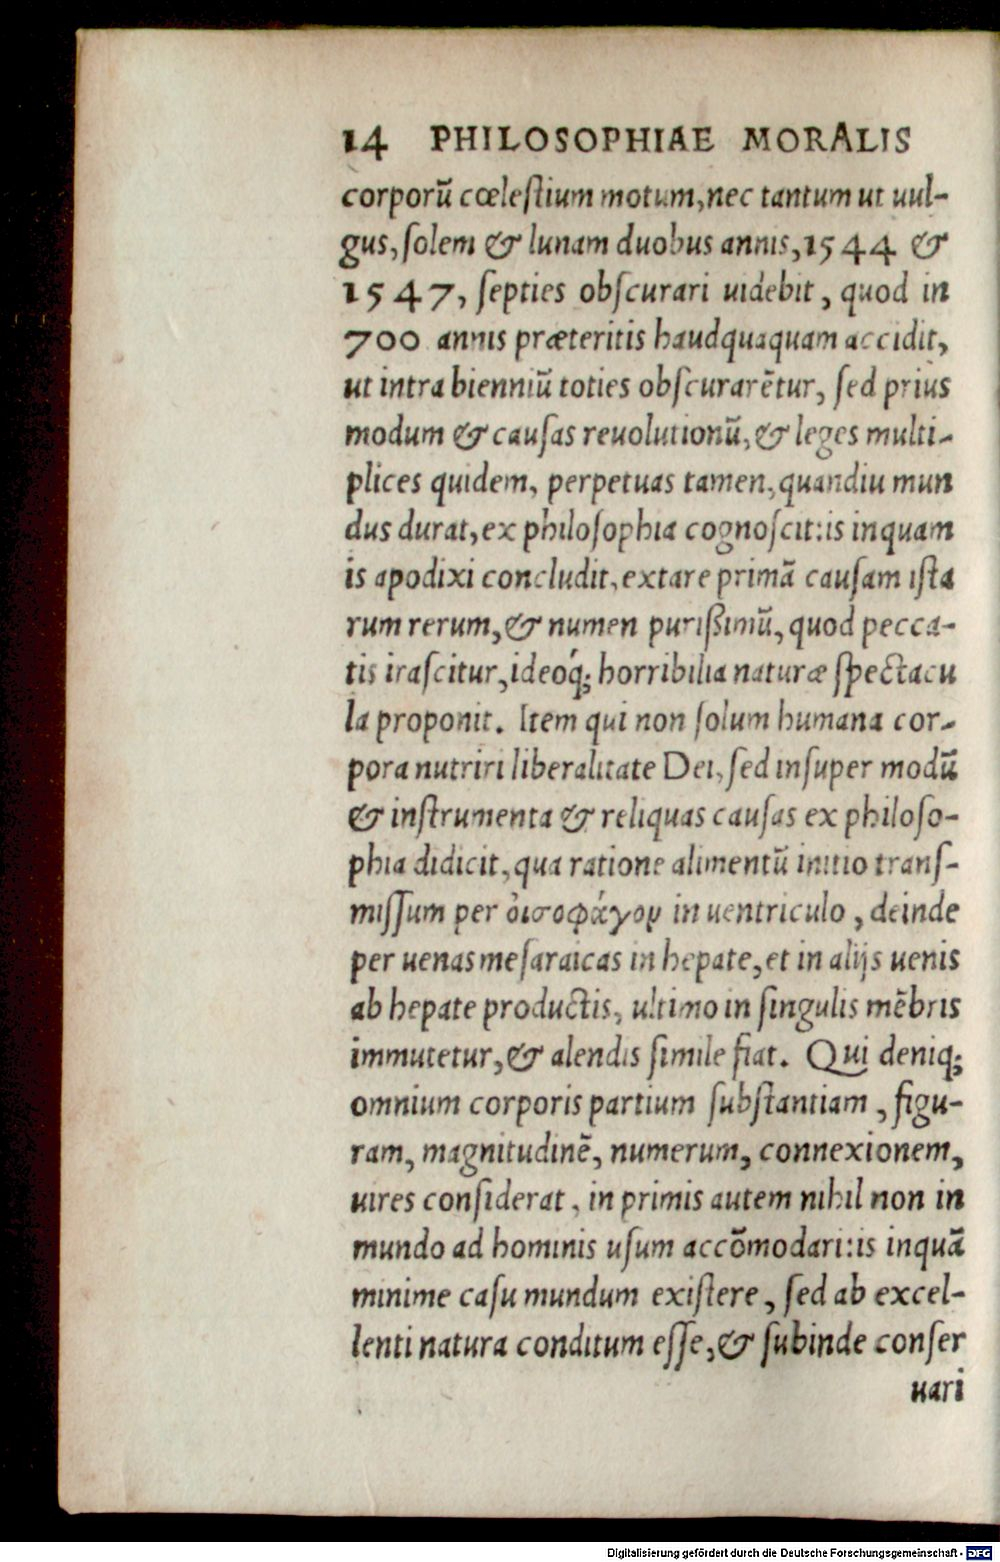 14 PHILOSOPHIAE MORALIS
corporū cœleſtium motum, nec tantum ut uul-
gus, ſolem & lunam duobus annis, 1544 &
1547, ſepties obſcurari uidebit, quod in
700 annis præteritis haudquaquam accidit,
ut intra bienniū toties obſcurarētur, ſed prius
modum & cauſas reuolutionū, & leges multi-
plices quidem, perpetuas tamen, quandiu mun
dus durat, ex philoſophia cognoſcit: is inquam
is apodixi concludit, extare primā cauſam iſta
rum rerum, & numen purißimū, quod pecca-
tis iraſcitur, ideoq́; horribilia naturæ ſpectacu
la proponit. Item qui non ſolum humana cor-
pora nutriri liberalitate Dei, ſed inſuper modū
& inſtrumenta & reliquas cauſas ex philoſo-
phia didicit, qua ratione alimentū initio tranſ-
miſſum per ὀισοφάγον in uentriculo, deinde
per uenas meſaraicas in hepate, et in alijs uenis
ab hepate productis, ultimo in ſingulis mēbris
immutetur, & alendis ſimile fiat. Qui deniq;
omnium corporis partium ſubſtantiam, figu-
ram, magnitudinē, numerum, connexionem,
uires conſiderat, in primis autem nihil non in
mundo ad hominis uſum accōmodari: is inquā
minime caſu mundum exiſtere, ſed ab excel-
lenti natura conditum eſſe, & ſubinde conſer
uari
Digitalisierung gefördert durch die Deutsche Forschungsgemeinschaft - DFG